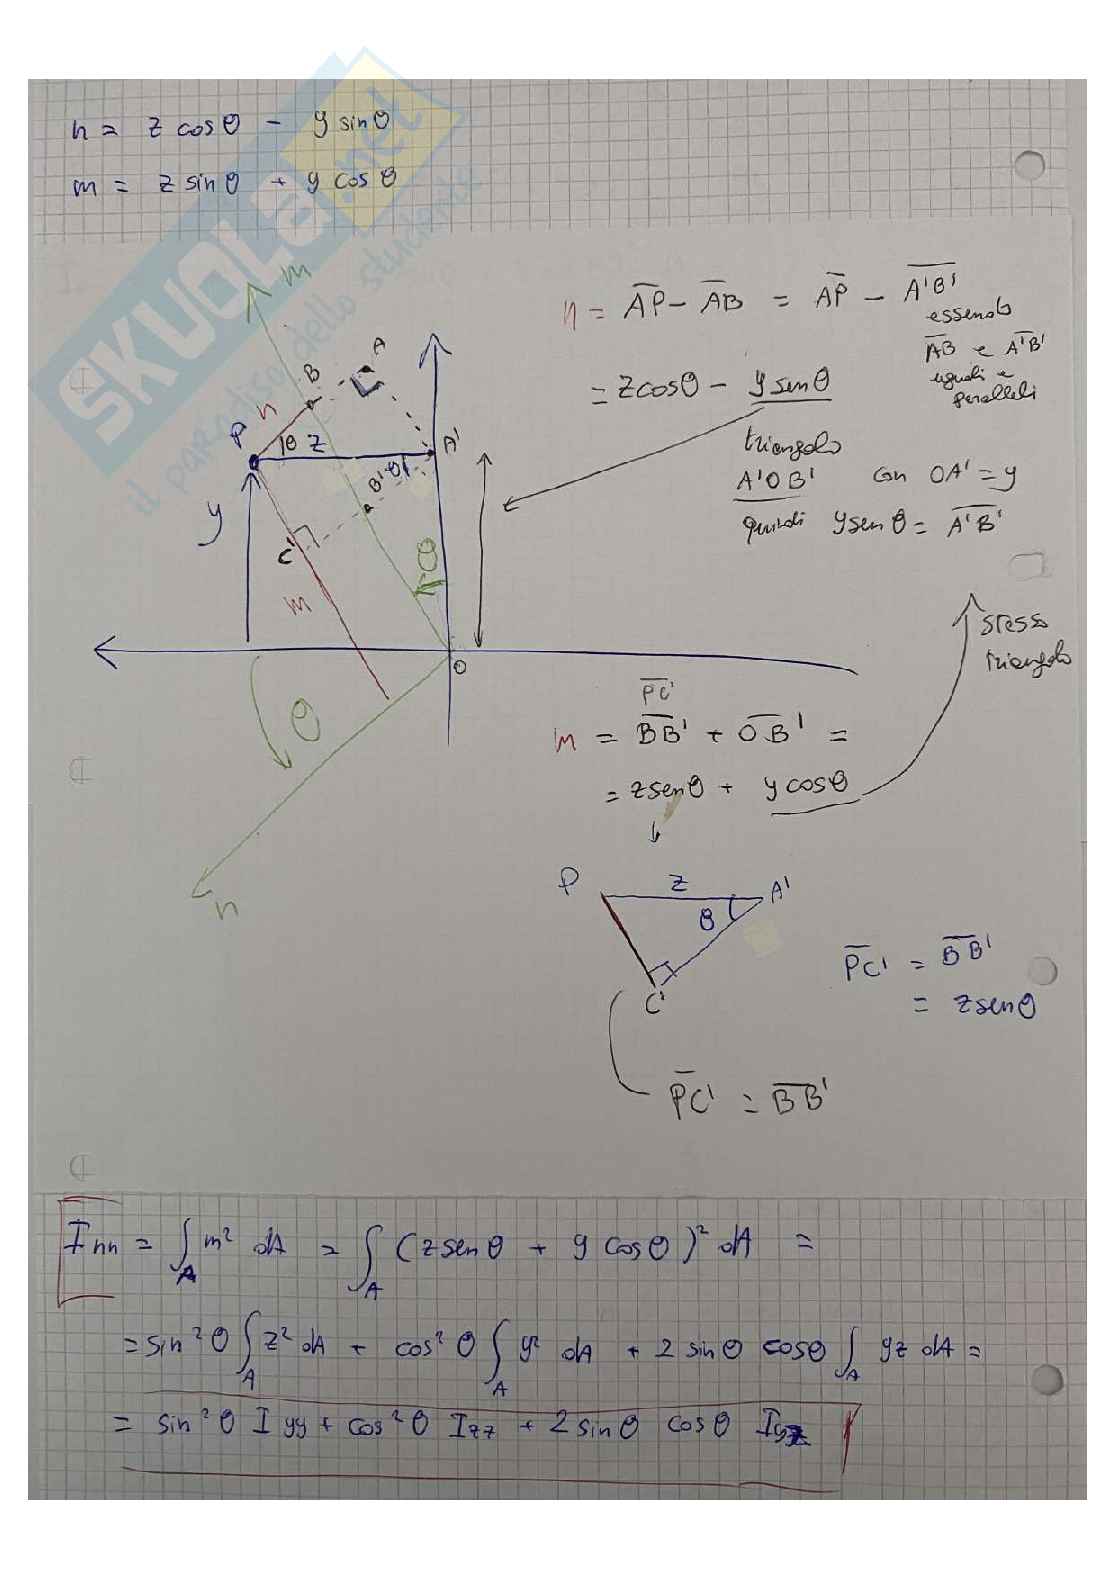 n = z cosθ - y sinθ
m = z sinθ + y cosθ
SKUOLA.net
il paradiso dello studente
m
n = AP - AB = AP - A'B'
essendo
AB e A'B'
uguali e
paralleli
= z cosθ - y senθ
triangolo
A'OB' con OA' = y
quindi y sen θ = A'B'
A
B
n
P
θ z
A'
B' θ
y
C'
m
θ
O
θ
n
stesso
triangolo
PC'
m = BB' + OB' =
= z senθ + y cosθ
P z A'
θ
C'
PC' = BB'
= z senθ
PC' = BB'
Inn = ∫A m² dA = ∫A (z senθ + y cosθ)² dA =
= sin²θ ∫A z² dA + cos²θ ∫A y² dA + 2 sinθ cosθ ∫A yz dA =
= sin²θ Iyy + cos²θ Izz + 2 sinθ cosθ Iyz